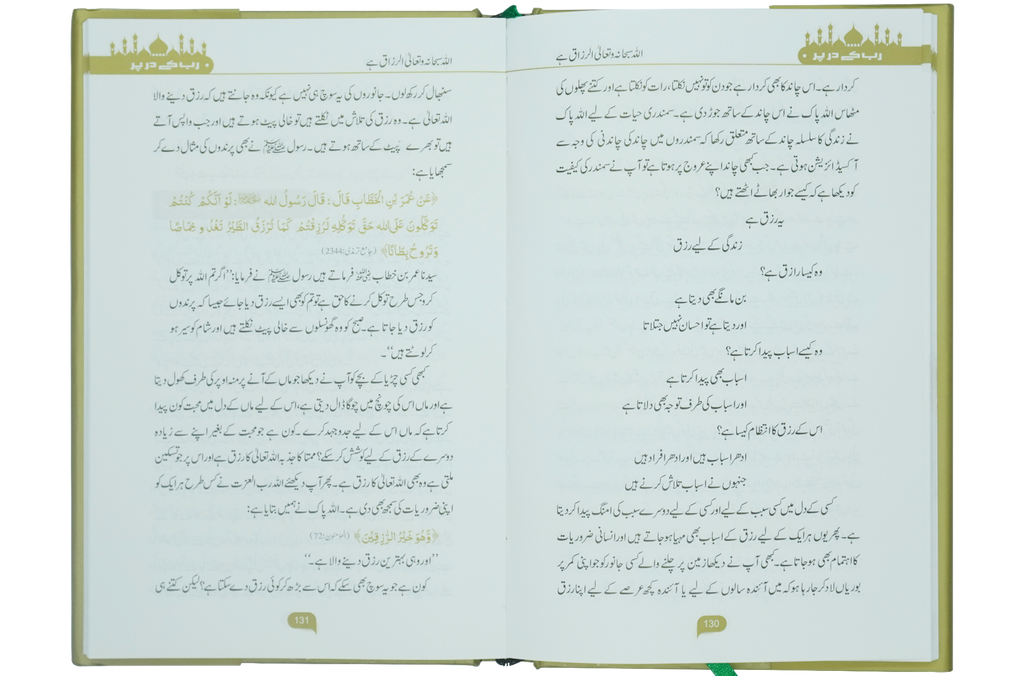 رب کے در پر
اللہ سبحانہ وتعالیٰ الرزاق ہے
کردار ہے۔ اس چاند کا بھی کردار ہے جو دن کو تو نہیں نکلتا، رات کو نکلتا ہے اور کتنے پھلوں کی
مٹھاس اللہ پاک نے اس چاند کے ساتھ جوڑ دی ہے۔ سمندری حیات کے لیے اللہ پاک
نے زندگی کا سلسلہ چاند کے ساتھ متعلق رکھا کہ سمندروں میں چاند کی چاندنی کی وجہ سے
آکسیڈائزیشن ہوتی ہے۔ جب کبھی چاند اپنے عروج پر ہوتا ہے تو آپ نے سمندر کی کیفیت
کو دیکھا ہے کہ کیسے جوار بھاٹے اٹھتے ہیں؟
یہ رزق ہی ہے
زندگی کے لیے رزق
وہ کیسا رازق ہے؟
بن مانگے بھی دیتا ہے
اور دیتا ہے تو احسان نہیں جتلاتا
وہ کیسے اسباب پیدا کرتا ہے؟
اسباب بھی پیدا کرتا ہے
اور اسباب کی طرف توجہ بھی دلاتا ہے
اس کے رزق کا انتظام کیسا ہے؟
ادھر اسباب ہیں اور ادھر افراد ہیں
جنہوں نے اسباب تلاش کرنے ہیں
کسی کے دل میں کسی سبب کے لیے اور کسی کے لیے دوسرے سبب کی امنگ پیدا کر دیتا
ہے۔ پھر یوں ہر ایک کے لیے رزق کے اسباب بھی مہیا ہو جاتے ہیں اور انسانی ضروریات
کا اہتمام بھی ہو جاتا ہے۔ کبھی آپ نے دیکھا زمین پر چلنے والے کسی جانور کو جو اپنی کمر پر
بوریاں لاد کر جا رہا ہو کہ میں آئندہ سالوں کے لیے یا آئندہ کچھ عرصے کے لیے اپنا رزق
130
رب کے در پر
اللہ سبحانہ وتعالیٰ الرزاق ہے
سنبھال کر رکھ لوں۔ جانوروں کی یہ سوچ ہی نہیں ہے کیونکہ وہ جانتے ہیں کہ رزق دینے والا
اللہ تعالیٰ ہی ہے۔ وہ رزق کی تلاش میں نکلتے ہیں تو خالی پیٹ ہوتے ہیں اور جب واپس آتے
ہیں تو بھرے پیٹ کے ساتھ ہوتے ہیں۔ رسول ﷺ نے بھی پرندوں کی مثال دے کر
سمجھایا ہے:
﴿عَنْ عُمَرَ بْنِ الْخَطَّابِ قَالَ: قَالَ رَسُولُ اللہ ﷺ: لَوْ أَنَّكُمْ كُنْتُمْ
تَوَكَّلُونَ عَلَی اللہ حَقَّ تَوَكُّلِهِ لَرُزِقْتُمْ كَمَا تُرْزَقُ الطَّيْرُ تَغْدُو خِمَاصًا
وَتَرُوحُ بِطَانًا﴾ (جامع ترمذی: 2344)
سیدنا عمر بن خطاب رضی اللہ عنہ فرماتے ہیں رسول ﷺ نے فرمایا: ’’اگر تم اللہ پر توکل
کرو جس طرح توکل کرنے کا حق ہے تو تم کو بھی ایسے رزق دیا جائے جیسا کہ پرندوں
کو رزق دیا جاتا ہے۔ صبح کو وہ گھونسلوں سے خالی پیٹ نکلتے ہیں اور شام کو سیر ہو
کر لوٹتے ہیں‘‘۔
کبھی کسی چڑیا کے بچے کو آپ نے دیکھا جو ماں کے آنے پر منہ اوپر کی طرف کھول دیتا
ہے اور ماں اس کی چونچ میں چوگا ڈال دیتی ہے، اس کے لیے ماں کے دل میں محبت کون پیدا
کرتا ہے کہ ماں اس کے لیے جدوجہد کرے۔ کون ہے جو محبت کے بغیر اپنے سے زیادہ
دوسرے کے رزق کے لیے کوشش کر سکے؟ ممتا کا جذبہ اللہ تعالیٰ کا رزق ہے اور اس پر جو تسکین
ملتی ہے وہ بھی اللہ تعالیٰ کا رزق ہے۔ پھر آپ دیکھئے اللہ رب العزت نے کس طرح ہر ایک کو
اپنی ضروریات کی سمجھ بھی دی ہے۔ اللہ پاک نے ہمیں بتایا ہے:
﴿وَهُوَ خَيْرُ الرّٰزِقِيْنَ﴾ (المؤمنون: 72)
’’اور وہی بہترین رزق دینے والا ہے۔‘‘
کون ہے جو یہ سوچ بھی سکے کہ اس سے بڑھ کر کوئی رزق دے سکتا ہے؟ لیکن کتنے ہی
131